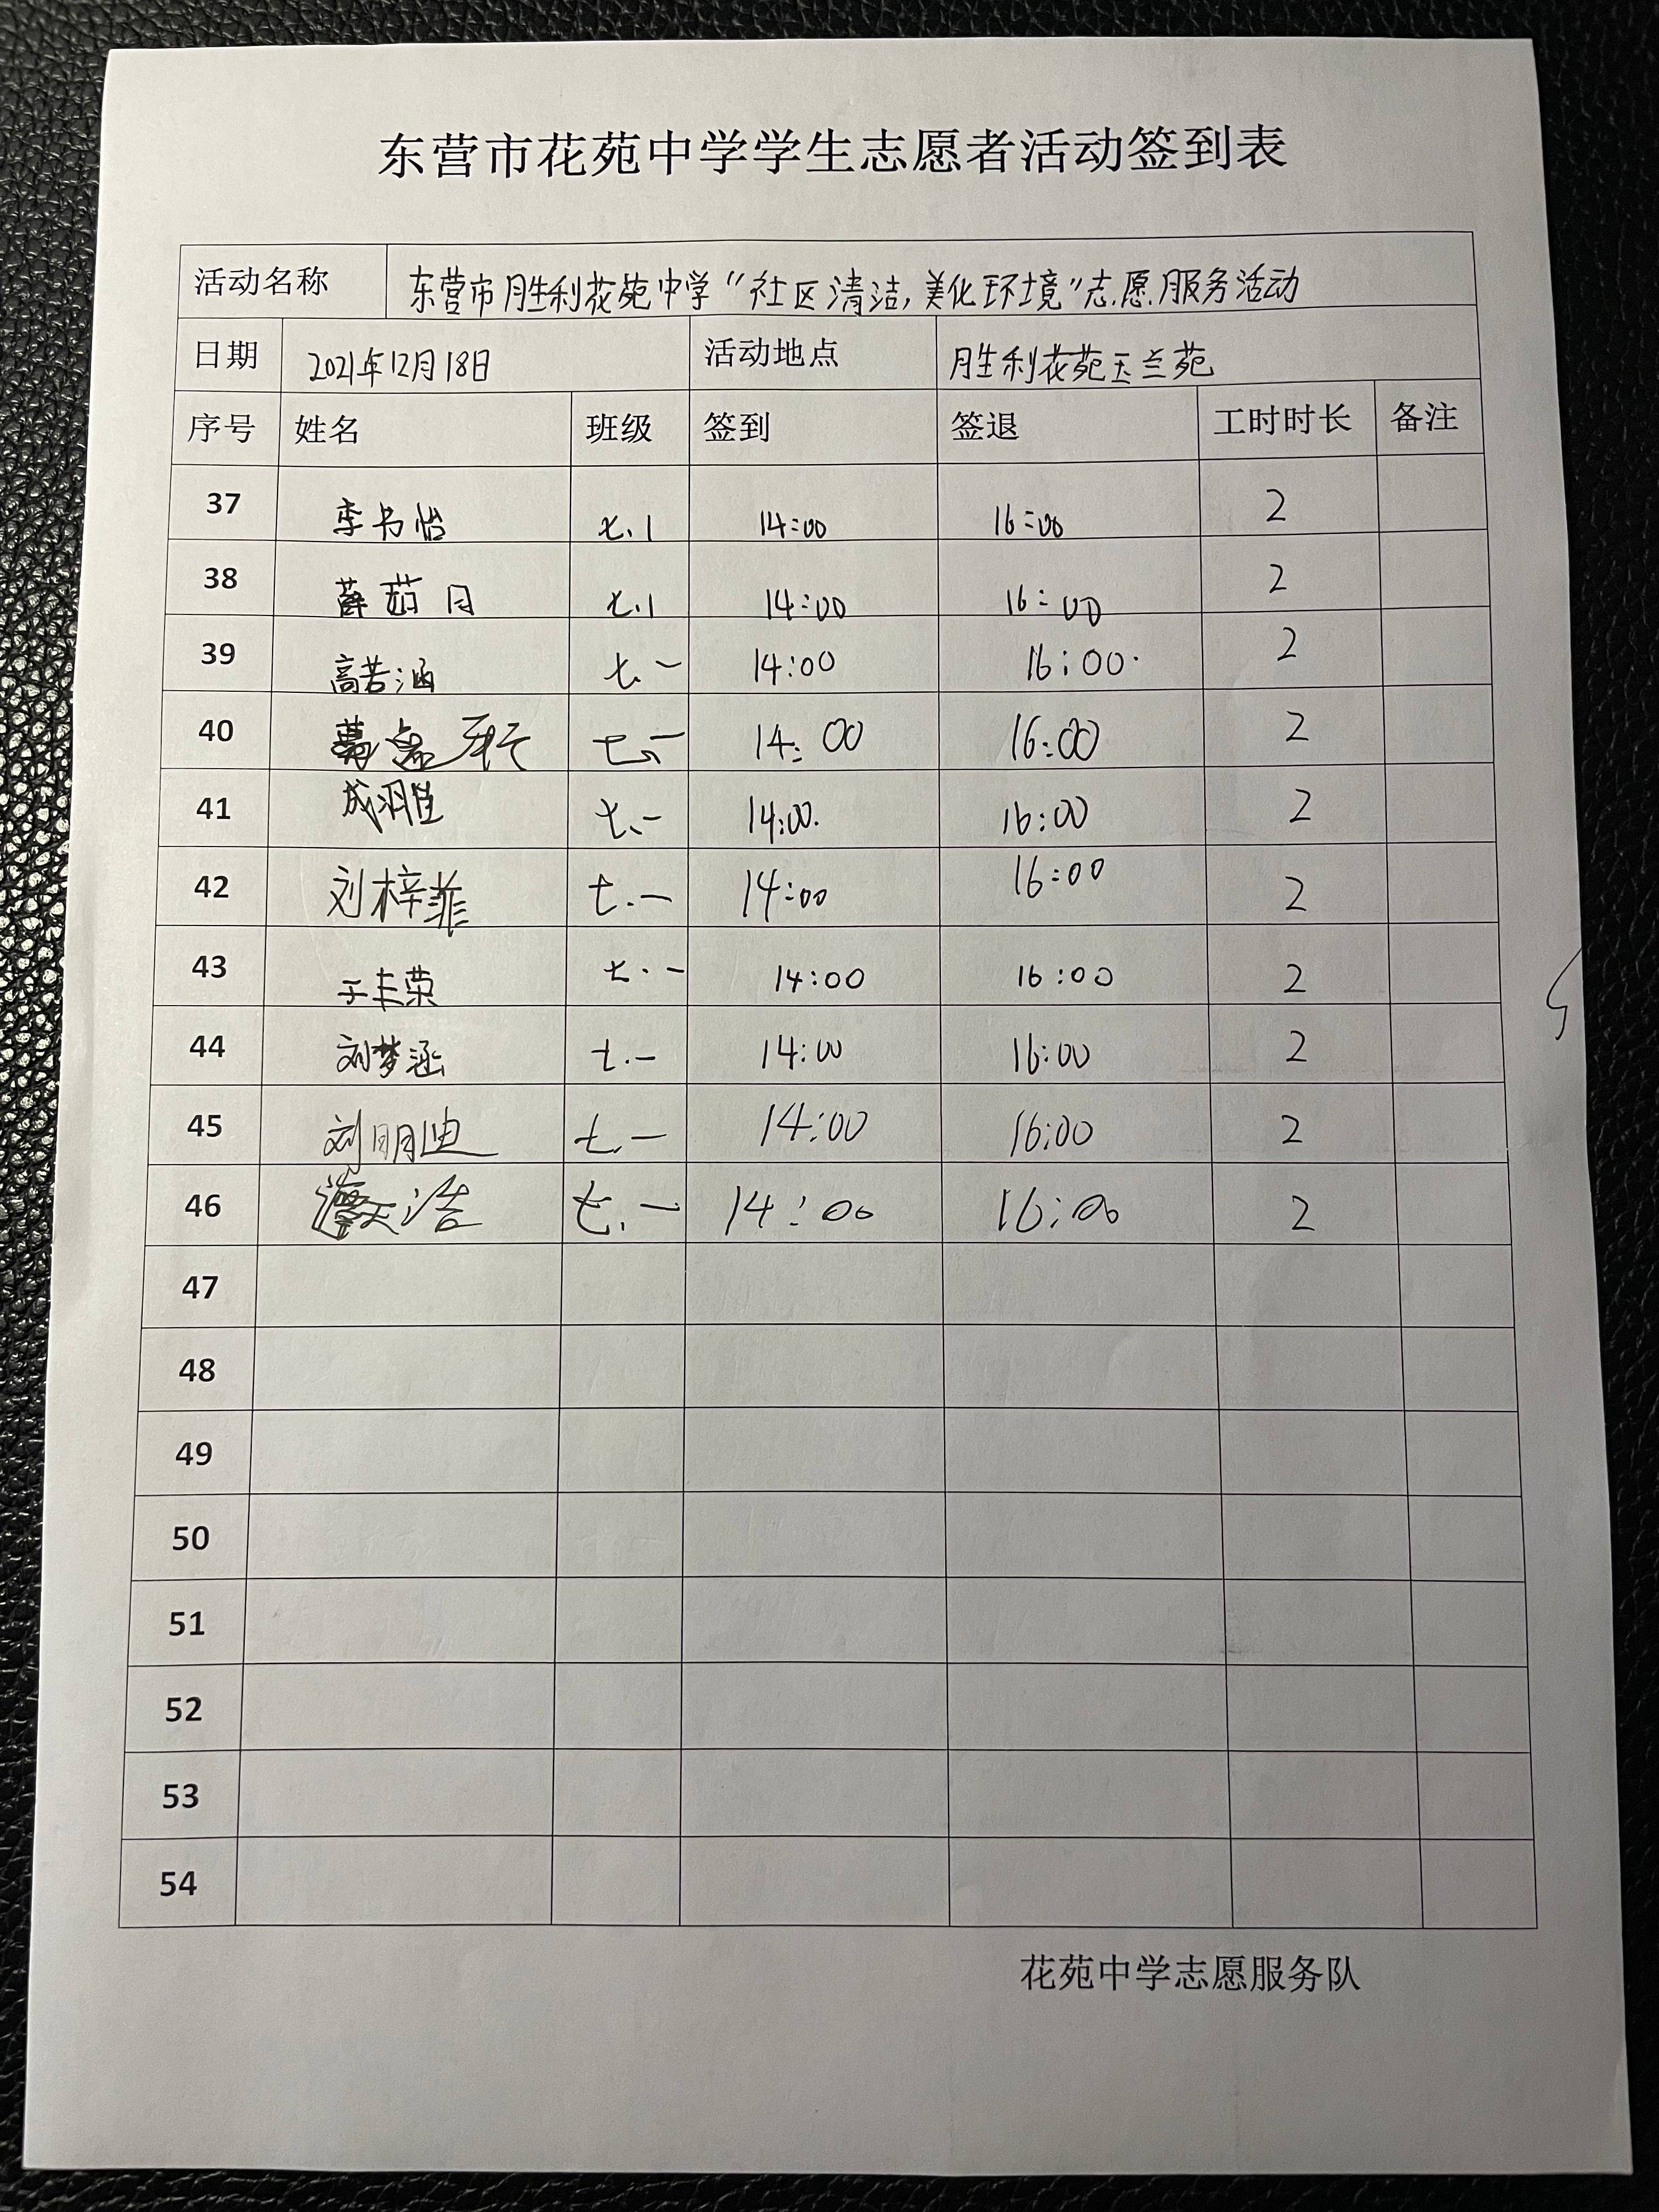 东营市花苑中学学生志愿者活动签到表
活动名称 东营市胜利花苑中学“社区清洁,美化环境”志愿服务活动
日期 2021年12月18日 活动地点 胜利花苑玉兰苑
序号 姓名 班级 签到 签退 工时时长 备注
37 李书怡 七.1 14:00 16:00 2
38 薛茹月 七.1 14:00 16:00 2
39 高若涵 七.一 14:00 16:00 2
40 七.一 14:00 16:00 2
41 成 七.一 14:00 16:00 2
42 刘梓菲 七.一 14:00 16:00 2
43 荣 七.一 14:00 16:00 2
44 刘梦涵 七.一 14:00 16:00 2
45 刘明迪 七.一 14:00 16:00 2
46 浩 七.一 14:00 16:00 2
47
48
49
50
51
52
53
54
花苑中学志愿服务队